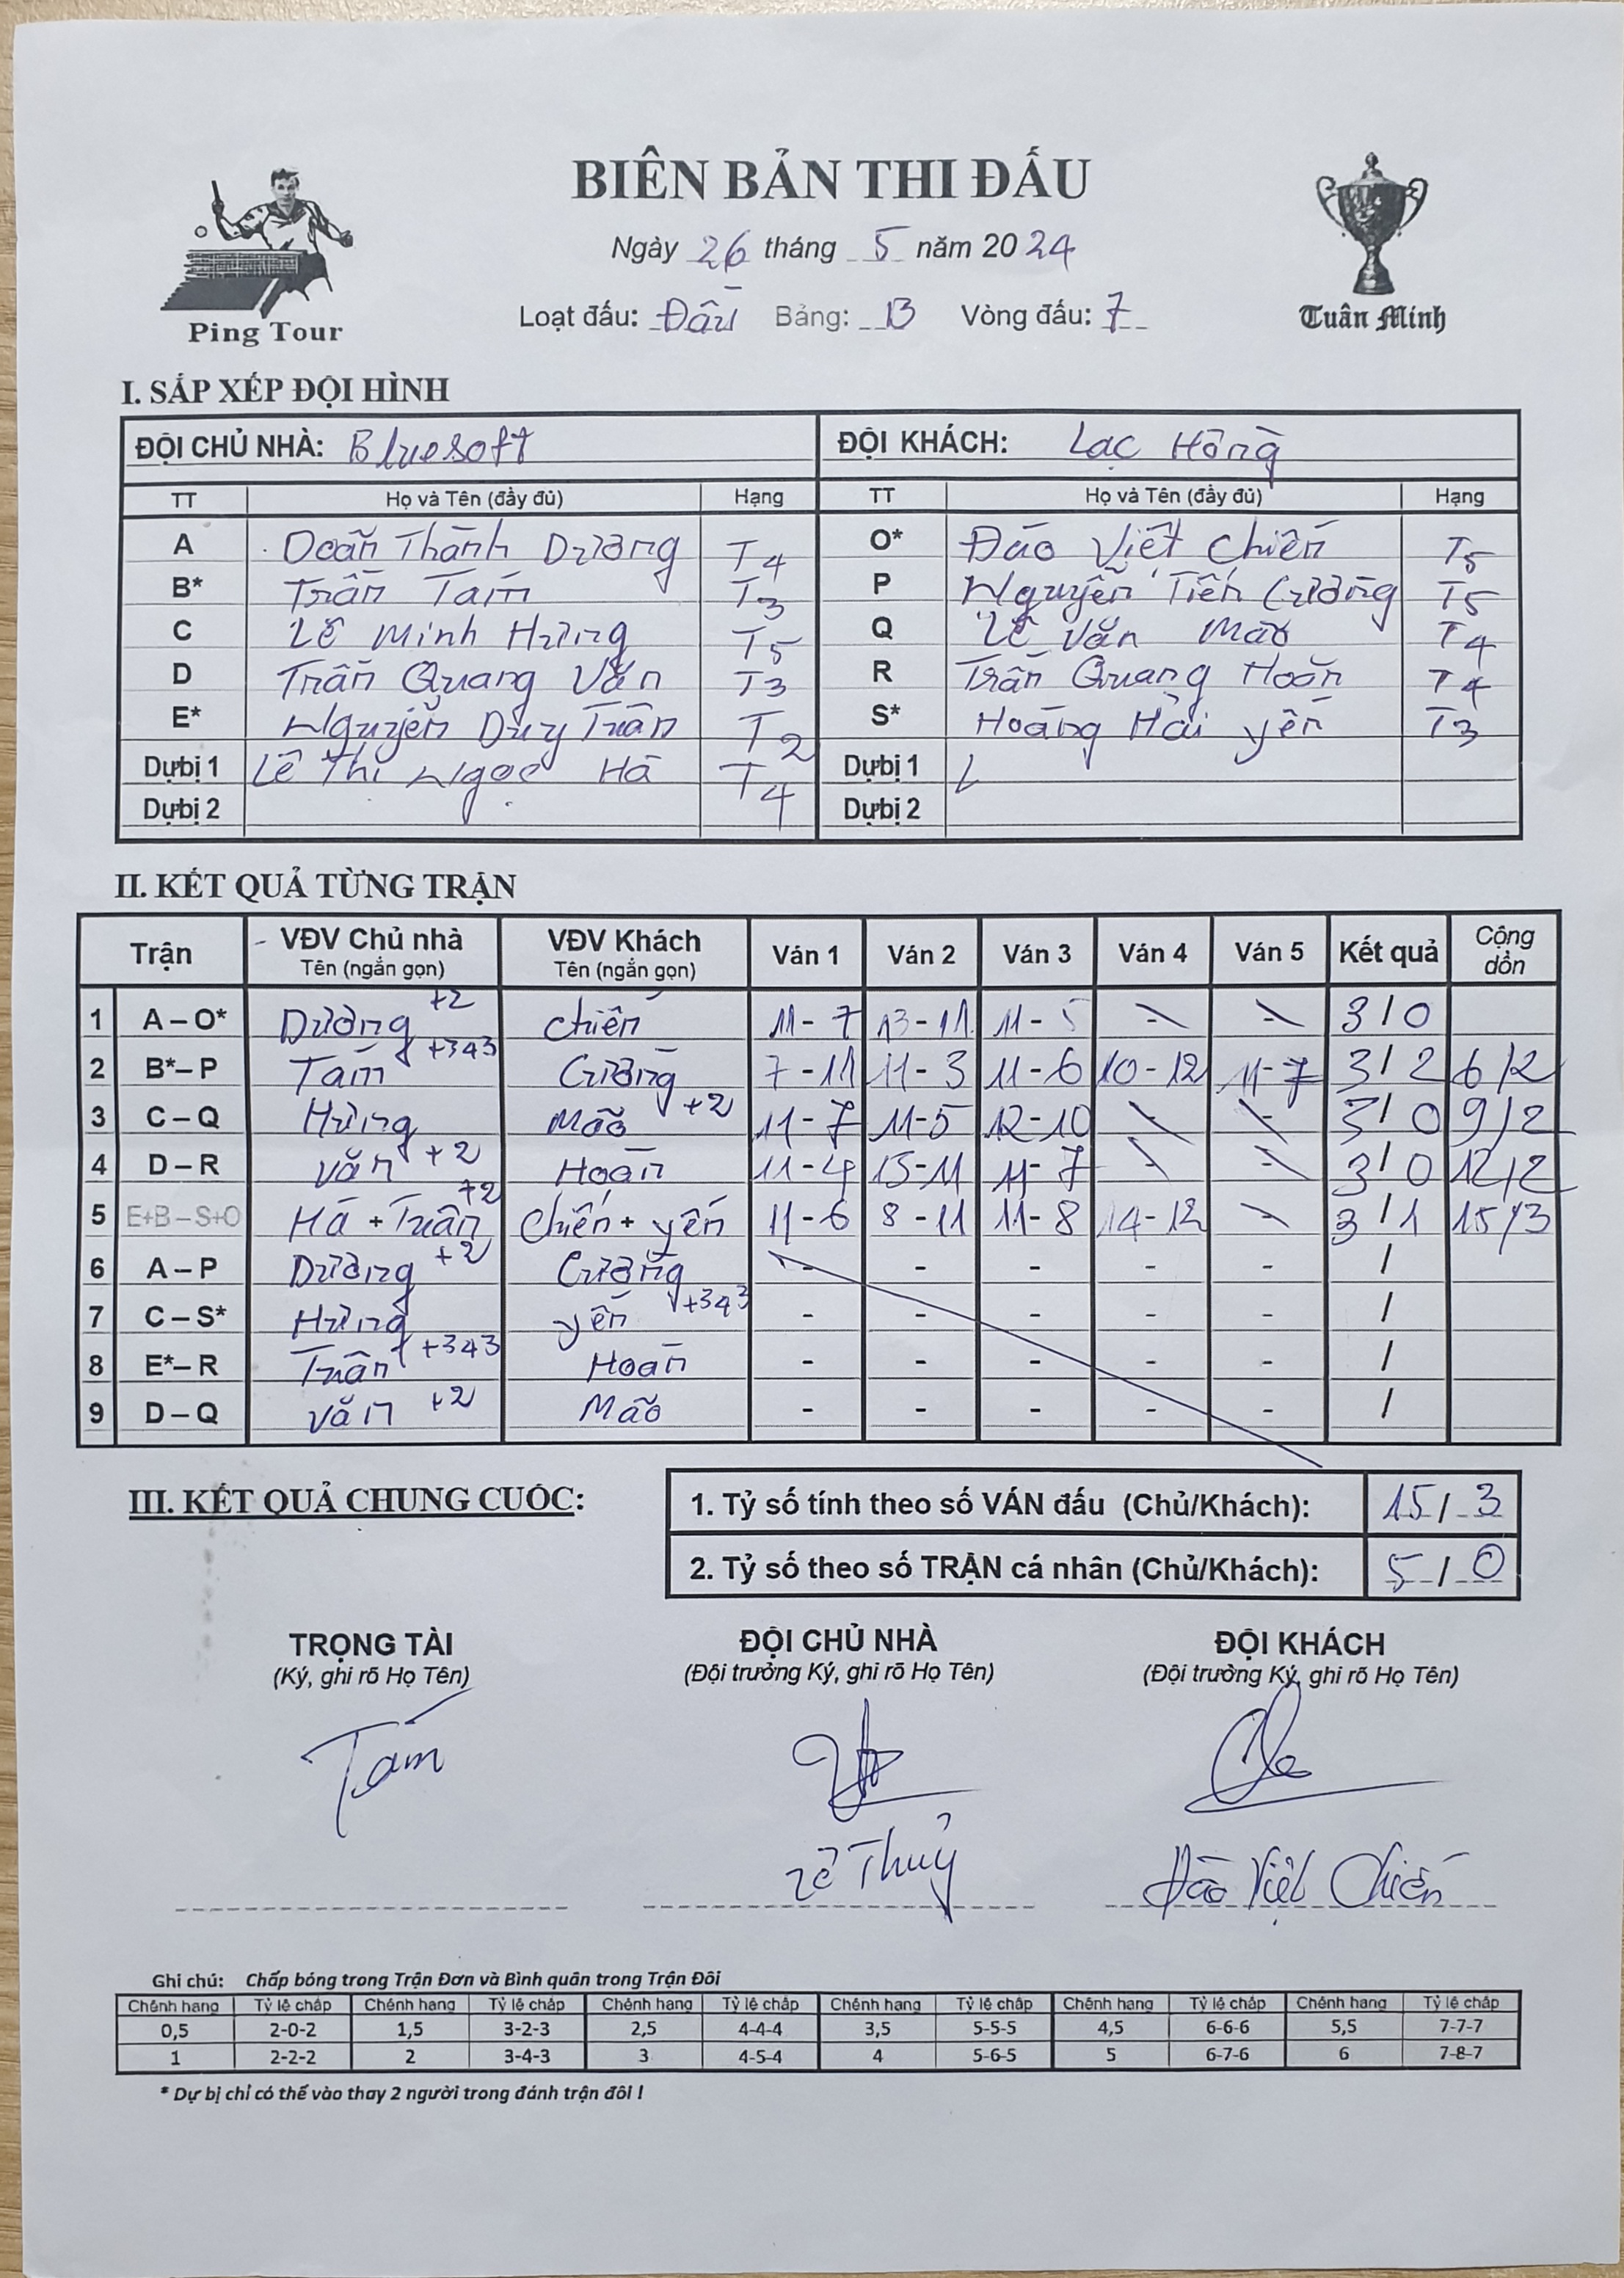 BIÊN BẢN THI ĐẤU
Ngày 26 tháng 5 năm 2024
Loạt đấu: Đầu Bảng: B Vòng đấu: 7
Ping Tour
Tuấn Minh
I. SẮP XẾP ĐỘI HÌNH
ĐỘI CHỦ NHÀ: Bluesoft ĐỘI KHÁCH: Lạc Hồng
TT Họ và Tên (đầy đủ) Hạng TT Họ và Tên (đầy đủ) Hạng
A Doãn Thành Dương T4 O* Đào Việt Chiến T5
B* Trần Tám T3 P Nguyễn Tiến Cường T5
C Lê Minh Hưng T5 Q Lê Văn Mão T4
D Trần Quang Văn T3 R Trần Quang Hoàn T4
E* Nguyễn Duy Tuân T2 S* Hoàng Hải yến T3
Dự bị 1 Lê Thị Ngọc Hà T4 Dự bị 1
Dự bị 2 Dự bị 2
II. KẾT QUẢ TỪNG TRẬN
Trận VĐV Chủ nhà VĐV Khách Ván 1 Ván 2 Ván 3 Ván 4 Ván 5 Kết quả Cộng dồn
Tên (ngắn gọn) Tên (ngắn gọn)
1 A – O* Dương +2 Chiến 11 - 7 13 - 11 11 - 5 - - 3 / 0
2 B* – P Tám +343 Cường 7 - 11 11 - 3 11 - 6 10 - 12 11 - 7 3 / 2 6/2
3 C – Q Hưng Mão +2 11 - 7 11 - 5 12 - 10 - - 3 / 0 9/2
4 D – R Văn +2 Hoàn 11 - 4 13 - 11 11 - 7 - - 3 / 0 12/2
5 E+B – S+O Hà + Tuân +2 Chiến + yến 11 - 6 8 - 11 11 - 8 14 - 12 - 3 / 1 15/3
6 A – P Dương +2 Cường - - - - - /
7 C – S* Hưng yến +343 - - - - - /
8 E* – R Tuân +343 Hoàn - - - - - /
9 D – Q Văn +2 Mão - - - - - /
III. KẾT QUẢ CHUNG CUỘC:
1. Tỷ số tính theo số VÁN đấu (Chủ/Khách): 15 / 3
2. Tỷ số theo số TRẬN cá nhân (Chủ/Khách): 5 / 0
TRỌNG TÀI ĐỘI CHỦ NHÀ ĐỘI KHÁCH
(Ký, ghi rõ Họ Tên) (Đội trưởng Ký, ghi rõ Họ Tên) (Đội trưởng Ký, ghi rõ Họ Tên)
Tám
Lê Thuỷ Đào Việt Chiến
Ghi chú: Chấp bóng trong Trận Đơn và Bình quân trong Trận Đôi
Chênh hạng Tỷ lệ chấp Chênh hạng Tỷ lệ chấp Chênh hạng Tỷ lệ chấp Chênh hạng Tỷ lệ chấp Chênh hạng Tỷ lệ chấp Chênh hạng Tỷ lệ chấp
0,5 2-0-2 1,5 3-2-3 2,5 4-4-4 3,5 5-5-5 4,5 6-6-6 5,5 7-7-7
1 2-2-2 2 3-4-3 3 4-5-4 4 5-6-5 5 6-7-6 6 7-8-7
* Dự bị chỉ có thể vào thay 2 người trong đánh trận đôi !